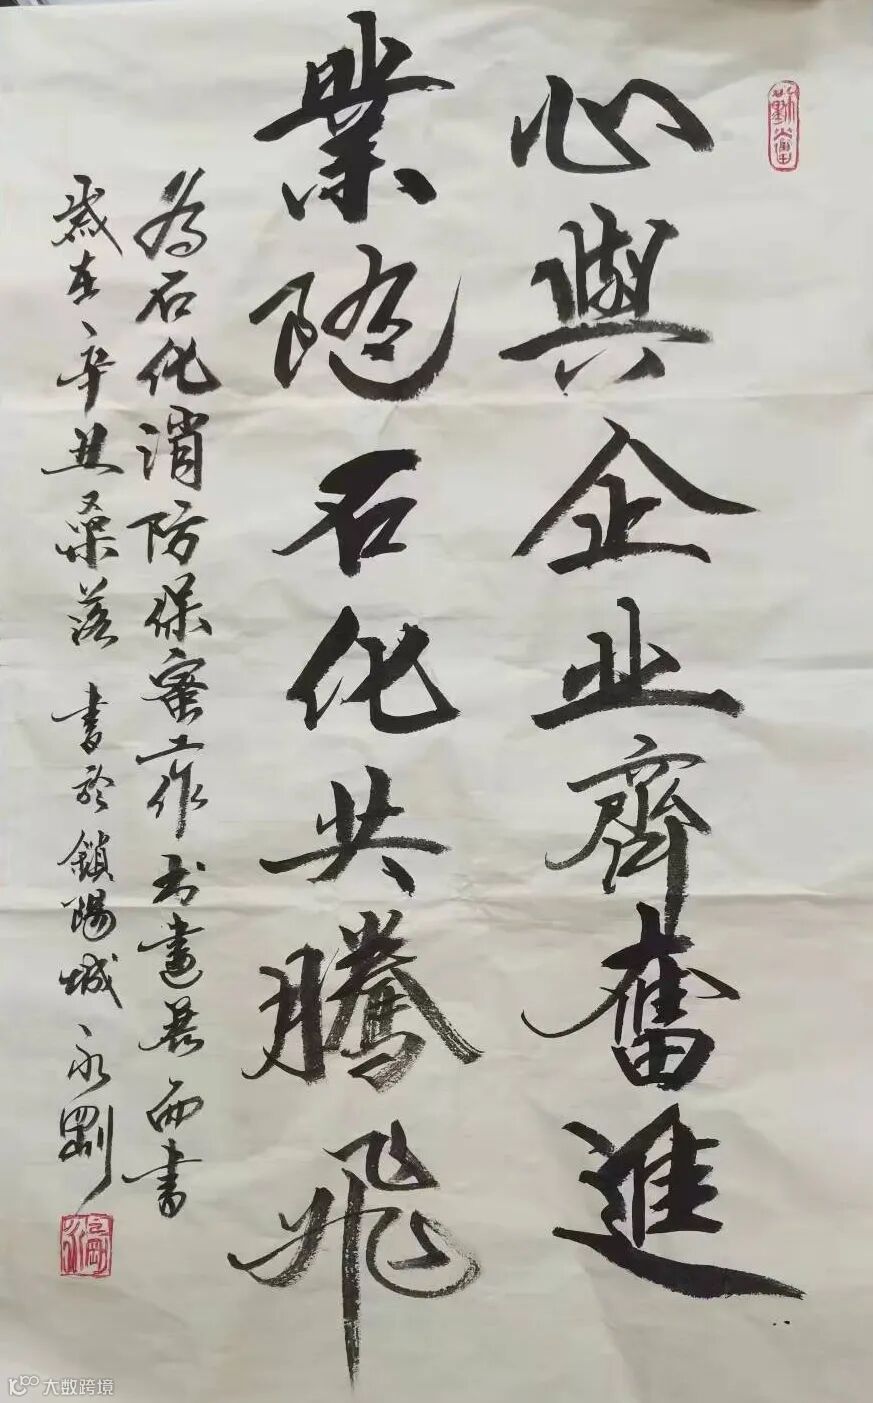 心與企业齊奮進
業随石化共騰飛
為石化消防保密工作书畫展而書
歲在辛丑桑落 書於鎖陽城 永剛
大数跨境